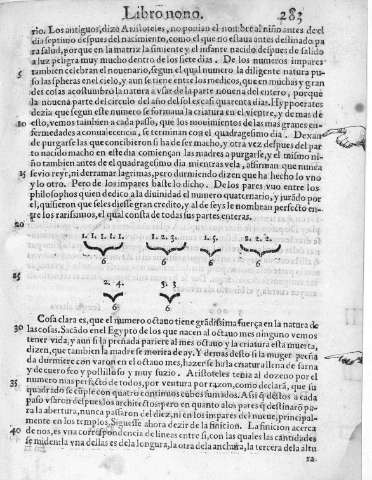 Libro nono. 283
rio. Los antiguos, dize Aristoteles, no ponian el nombre al niño antes de el
dia septimo despues del nacimiento, como el que no estaua antes destinado pa
ra salud, porque en la matriz la simiente y el infante nacido despues de salido
a luz peligra muy mucho dentro de los siete dias. De los numeros impares
5 tambien celebran el nouenario, segun el qual numero la diligente natura pu-
so las spheras en el cielo, y aun se tiene entre los medicos, que en muchas y gran
des cosas acostumbró la natura a vsar de la parte nouena del entero, porque
la nouena parte del circulo del año del sol es casi quarenta dias. Hyppocrates
dezia que segun este numero se forma la criatura en el vientre, y demas de
10 esto, vemos tambien a cada passo, que los mouimientos de las mas graues en-
fermedades a conualecencia, se terminan con el quadragesimo dia. Dexan
de purgarse las que concibieron si ha de ser macho, y otra vez despues del par
to nacido macho en este dia comiençan las madres a purgarse, y el mismo ni-
ño tambien antes de el quadragesimo dia mientras vela, affirman que nunca
15 se vio reyr, ni derramar lagrimas, pero durmiendo dizen que ha hecho lo vno
y lo otro. Pero de los impares baste lo dicho. De los pares vuo entre los
philosophos quien dedico a la diuinidad el numero quaternario, y jurãdo por
el, quisieron que se les diesse gran credito, y al de seys le nombran perfecto en-
tre los rarissimos, el qual consta de todas sus partes enteras.
20
1. 1. 1. 1. 1. 1. 2. 3. 1. 5. 2. 2. 2.
6 6 6 6
25
2. 4. 3. 3.
6 6
Cosa clara es, que el numero octauo tiene grãdissima fuerça en la natura de
30 las cosas. Sacãdo en el Egypto de los que nacen al octauo mes ninguno vemos
tener vida, y aun si la preñada pariere al mes octauo y la criatura esta muerta,
dizen, que tambien la madre se morira de ay. Y demas desto si la muger preña
da durmiere con varon en el octauo mes, hazerse ha la criatura llena de sarna
y de cuero feo y postilloso y muy suzio. Aristoteles tenia al dozeno por el
35 numero mas perfecto de todos, por ventura por razon, como declara, que su
quadrado se cũple con quatro continuos cubos sumados. Assi q̃ destos a cada
passo vsaron despues los architectos, pero en quanto a los pares q̃ destinarõ pa-
ra la abertura, nunca passaron del diez, ni en los impares del nueue, principal-
mente en los templos. Siguesse ahora dezir de la finicion. La finicion acerca
40 de nos, es vna correspondencia de lineas entre si, con las quales las cantidades
se miden, la vna dellas es de la longura, la otra de la anchura, la tercera de la altu
ra.